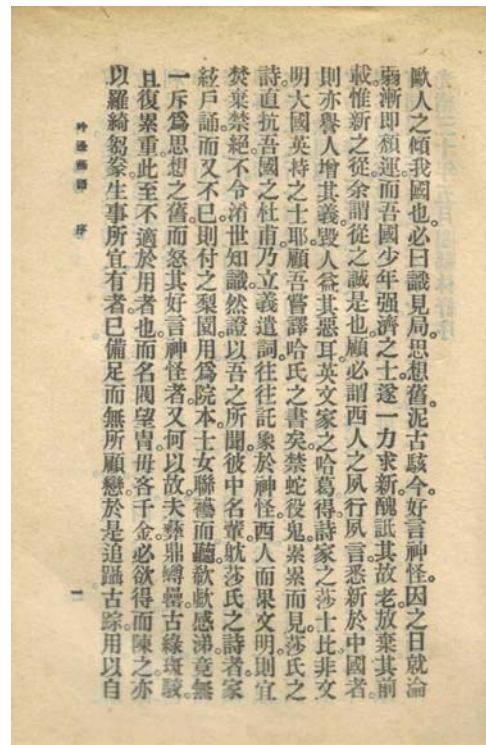 歐人之傾我國也必曰識見局。思想舊泥古駭今。好言神怪。因之日就淪
弱漸即頹運而吾國少年强濟之士遂一力求新。醜詆其故老。放棄其前
載惟新之從。余謂從之誠是也。顧必謂西人之夙行夙言悉新於中國者。
則亦譽人增其義毀人益其惡耳。英文家之哈葛得詩家之莎士比非文
明大國英持之士耶。顧吾嘗譯哈氏之書矣。禁蛇役鬼累累而見。莎氏之
詩。直抗吾國之杜甫。乃立義遣詞往往託象於神怪。西人而果文明。則宜
焚棄禁絕。不令淆世知識。然證以吾之所聞。彼中名輩躭莎氏之詩者。家
絃戶誦而又不已。則付之梨園用爲院本。士女聯襼而聽。欷歔感涕。竟無
一斥爲思想之舊而怒其好言神怪者。又何以故。夫彝鼎罇罍。古綠斑駁。
且復累重。此至不適於用者也。而名閥望胄。毋吝千金。必欲得而陳之。亦
以羅綺芻豢。生事所宜有者。已備足而無所顧戀。於是追躡古踪。用以自
吟邊燕語 序 一